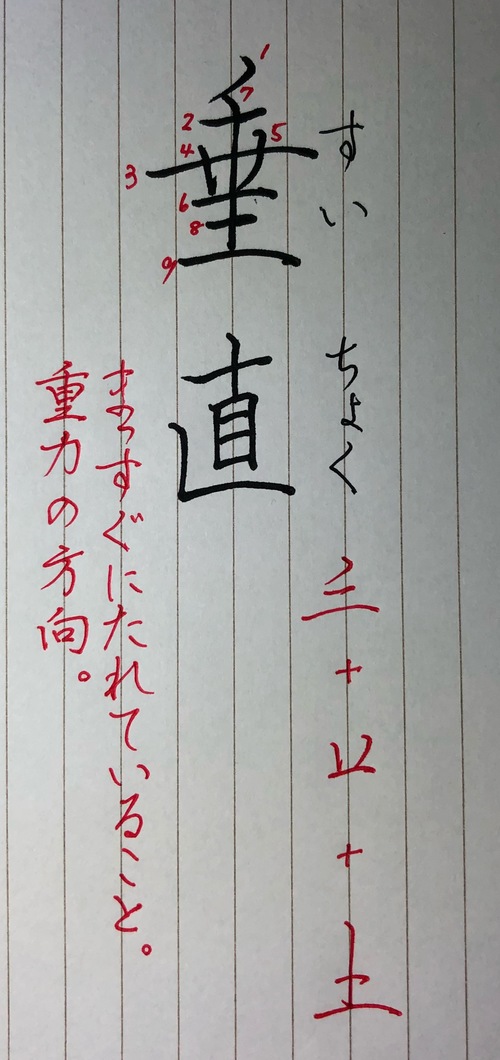 すい ちょく
垂直
1 2 3 4 5 6 7 8 9
+ + 土
まっすぐにたれていること。
重力の方向。